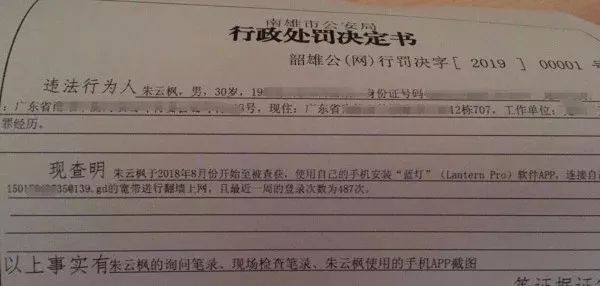 南雄市公安局
行政处罚决定书
韶雄公(网)行罚决字[ 2019 ] 00001 号
违法行为人 朱云枫，男，30岁，19 身份证号码
：广东省 号，现住：广东省 12栋707，工作单位：
罪经历。
现查明 朱云枫于2018年8月份开始至被查获，使用自己的手机安装“蓝灯”（Lantern Pro）软件APP，连接自
150 350139.gd的宽带进行翻墙上网，且最近一周的登录次数为487次。
以上事实有 朱云枫的询问笔录、现场检查笔录、朱云枫使用的手机APP截图